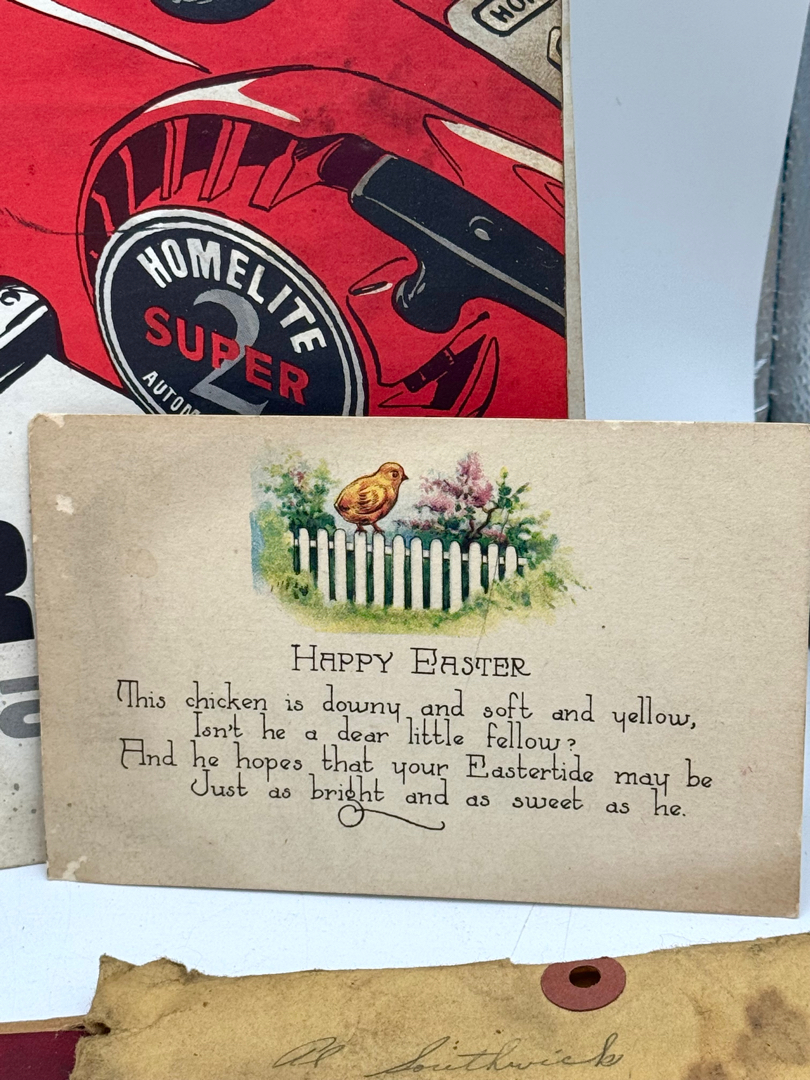 HOMELITE
SUPER
2
HAPPY EASTER
This chicken is downy and soft and yellow,
Isn't he a dear little fellow?
And he hopes that your Eastertide may be
Just as bright and as sweet as he.
Al Southwick